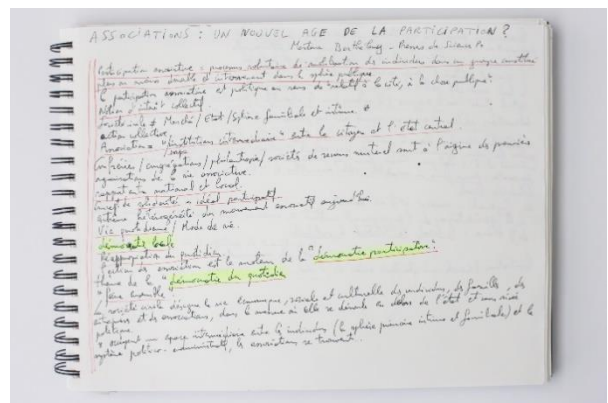 ASSOCIATIONS : UN NOUVEL AGE DE LA PARTICIPATION ?
Martine Barthélemy - Presses de Sciences Po
Participation associative = processus volontaire de mobilisation des individus dans un groupe constitué
plus ou moins durable et intervenant dans la sphère publique
la participation associative est politique au sens de "relatif à la cité, à la chose publique"
Notion d'intérêt collectif
Marché / Etat / Sphère familiale et intime.
action collective
Associations = "institutions intermédiaires" entre le citoyen et l'état central.
Confréries / congrégations / philantropie / sociétés de secours mutuel sont à l'origine des premières
organisations de la vie associative.
rapport entre national et local.
idéal participatif
hétérogénéité du mouvement associatif aujourd'hui.
Vie quotidienne / Mode de vie.
démocratie locale
Réappropriation du quotidien
est le moteur de la "démocratie participative"
thème de la "démocratie du quotidien"
"faire ensemble"
La société civile désigne la vie économique, sociale et culturelle des individus, des familles, des
entreprises et des associations, dans la mesure où elle se déroule en dehors de l'état et
politique.
espace intermédiaire entre les individus (la sphère intime et familiale) et le
système politico-administratif, les associations se trouvent..